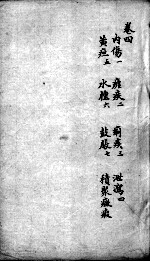 卷四
内傷一 瘧疾二 痢疾三 泄瀉四
黄疸五 水腫六 鼓脹七 積聚癥瘕